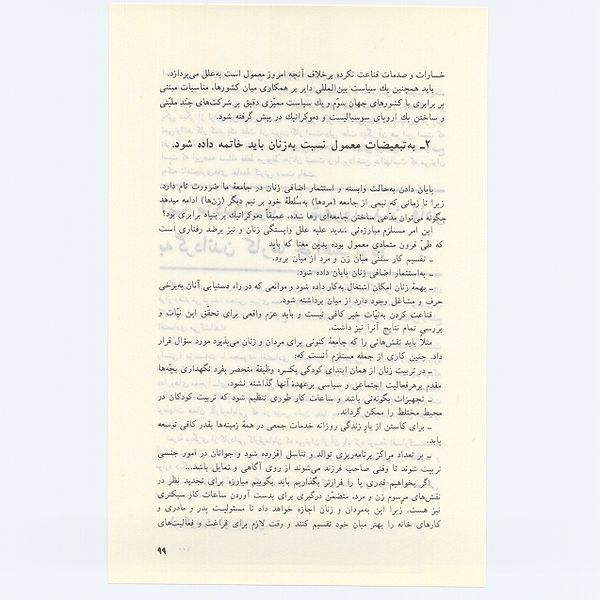 خسارات و صدمات قناعت نکرده برخلاف آنچه امروز معمول است به‌علل می‌پردازد.
باید همچنین یك سیاست بین‌المللی دایر بر همکاری میان کشورها، مناسبات مبتنی
بر برابری با کشورهای جهان سوّم و یك سیاست ممیّزی دقیق بر شرکت‌های چند ملیّتی
و ساختن یك اروپای سوسیالیست و دموکراتیك در پیش گرفته شود.
۲ـ به‌تبعیضات معمول نسبت به‌زنان باید خاتمه داده شود.
پایان دادن به‌حالت وابسته و استثمار اضافی زنان در جامعهٔ ما ضرورت تام دارد.
زیرا تا زمانی که نیمی از جامعه (مردها) به‌سُلطهٔ خود بر نیم دیگر (زن‌ها) ادامه میدهد
چگونه می‌توان مدّعی ساختن جامعه‌ای رها شده، عمیقاً دموکراتیك بر بنیاد برابری بود؟
این امر مستلزم مبارزه‌ئی شدید علیه علل وابستگی زنان و نیز برضد رفتاری است
که طیّ قرون متمادی معمول بوده بدین معنا که باید
ـ تقسیم کار سنّتی میان زن و مرد از میان برود.
ـ به‌استثمار اضافی زنان پایان داده شود.
ـ بهمهٔ زنان امکان اشتغال به‌کار داده شود و موانعی که در راه دستیابی آنان به‌برخی
حرف و مشاغل وجود دارد از میان برداشته شود.
قناعت کردن به‌نیّات خیر کافی نیست و باید عزم واقعی برای تحقّق این نیّات و
بررسی تمام نتایج آنرا نیز داشت.
مثلاً باید نقش‌هائی را که جامعهٔ کنونی برای مردان و زنان می‌پذیرد مورد سؤال قرار
داد. چنین کاری از جمله مستلزم آنست که:
ـ در تربیت زنان از همان ابتدای کودکی یکسره وظیفهٔ منحصر بفرد نگهداری بچّه‌ها
مقدم برهرفعالیت اجتماعی و سیاسی برعهدهٔ آنها گذاشته نشود.
ـ تجهیزات بگونه‌ئی باشد و ساعات کار طوری تنظیم شود که تربیت کودکان در
محیط مختلط را ممکن گرداند.
ـ برای کاستن از بارِ زندگی روزانه خدمات جمعی در همهٔ زمینه‌ها بقدر کافی توسعه
یابد.
ـ بر تعداد مراکز برنامه‌ریزی توالد و تناسل افزوده شود و جوانان در امور جنسی
تربیت شوند تا وقتی صاحب فرزند می‌شوند از روی آگاهی و تمایل باشد...
اگر بخواهیم قدری پا را فراتر بگذاریم باید بگوییم مبارزه برای تجدید نظر در
نقش‌های مرسوم زن و مرد، متضمّن درگیری برای بدست آوردن ساعات کار سبکتری
نیز هست. زیرا این به‌مردان و زنان اجازه خواهد داد تا مسئولیت پدر و مادری و
کارهای خانه را بهتر میان خود تقسیم کنند و وقت لازم برای فراغت و فعالیت‌های
۹۹